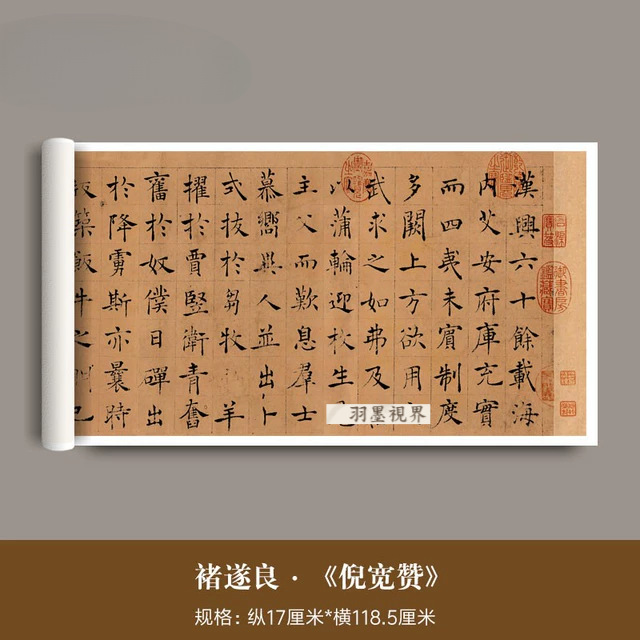 漢興六十餘載海
内艾安府庫充實
而四夷未賓制度
多闕上方欲用
武求之如弗及
以蒲輪迎枚生
主父而歎息羣士
慕嚮異人並出卜
式拔於芻牧羊
擢於賈豎衛青奮
舊於奴僕日磾出
於降虜斯亦曩時
築飯牛之已
御書房鑑藏寶
羽墨視界
褚遂良·《倪宽赞》
规格：纵17厘米*横118.5厘米